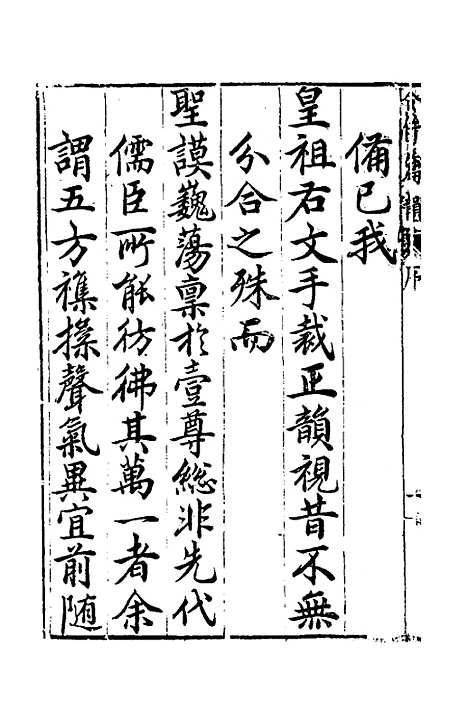 備已我
皇祖右文手裁正韻視昔不無
分合之殊而
聖謨巍蕩稟於壹尊総非先代
儒臣所能彷彿其萬一者余
謂五方襍揉聲氣異宜前随